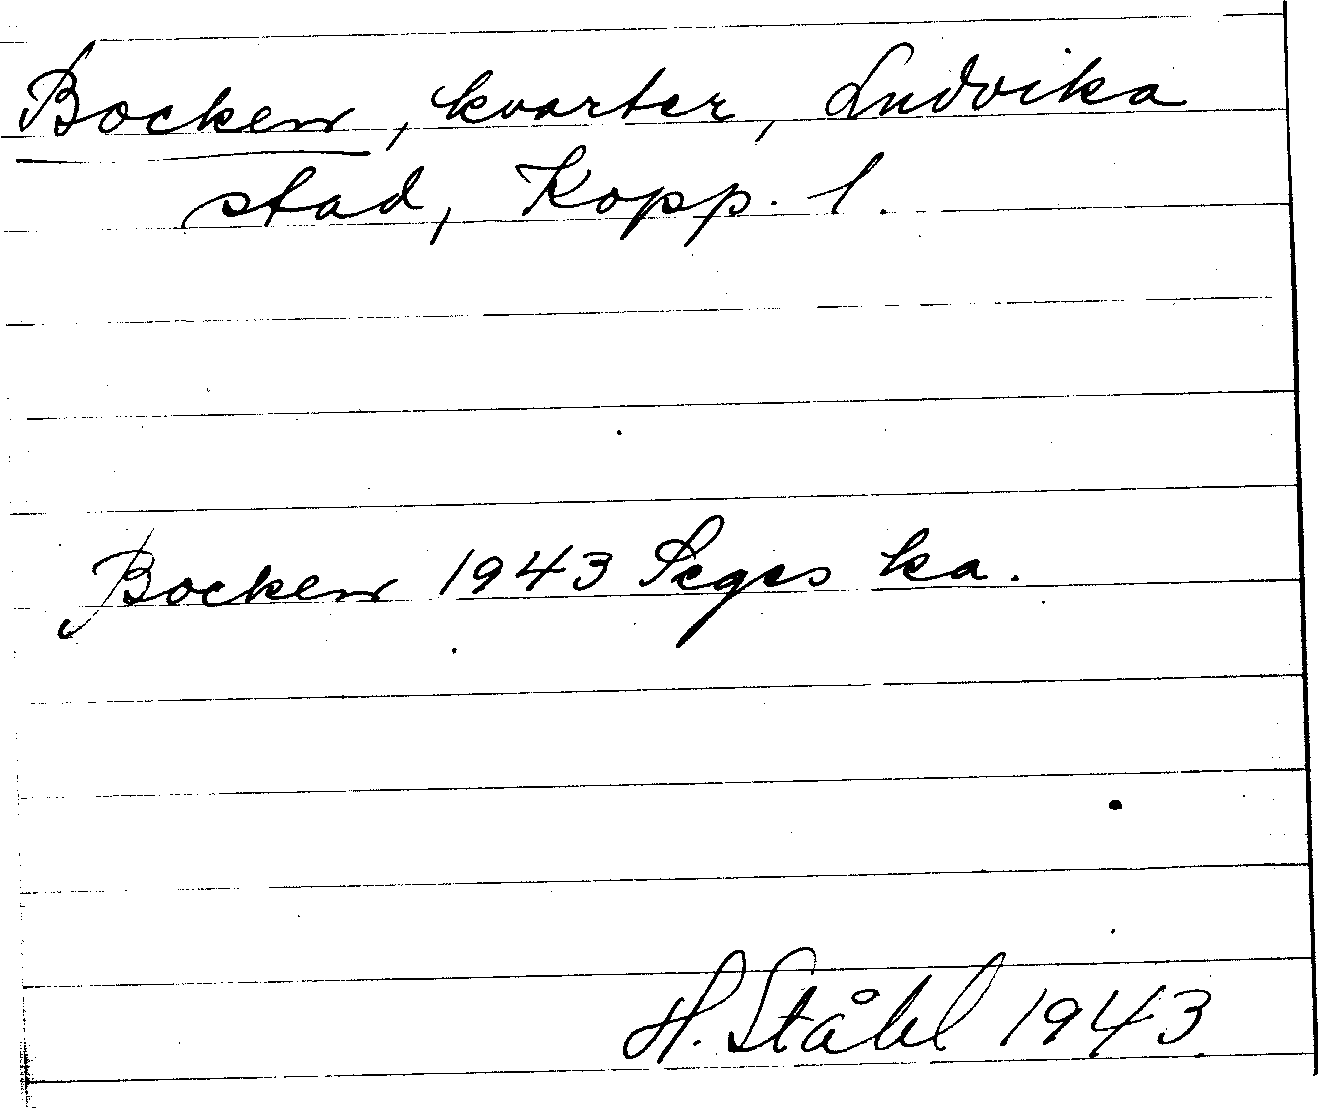 Bocken, kvarter, Ludvika
stad, Kopp. l.
Bocken 1943 Seges ka.
H. Ståhl 1943